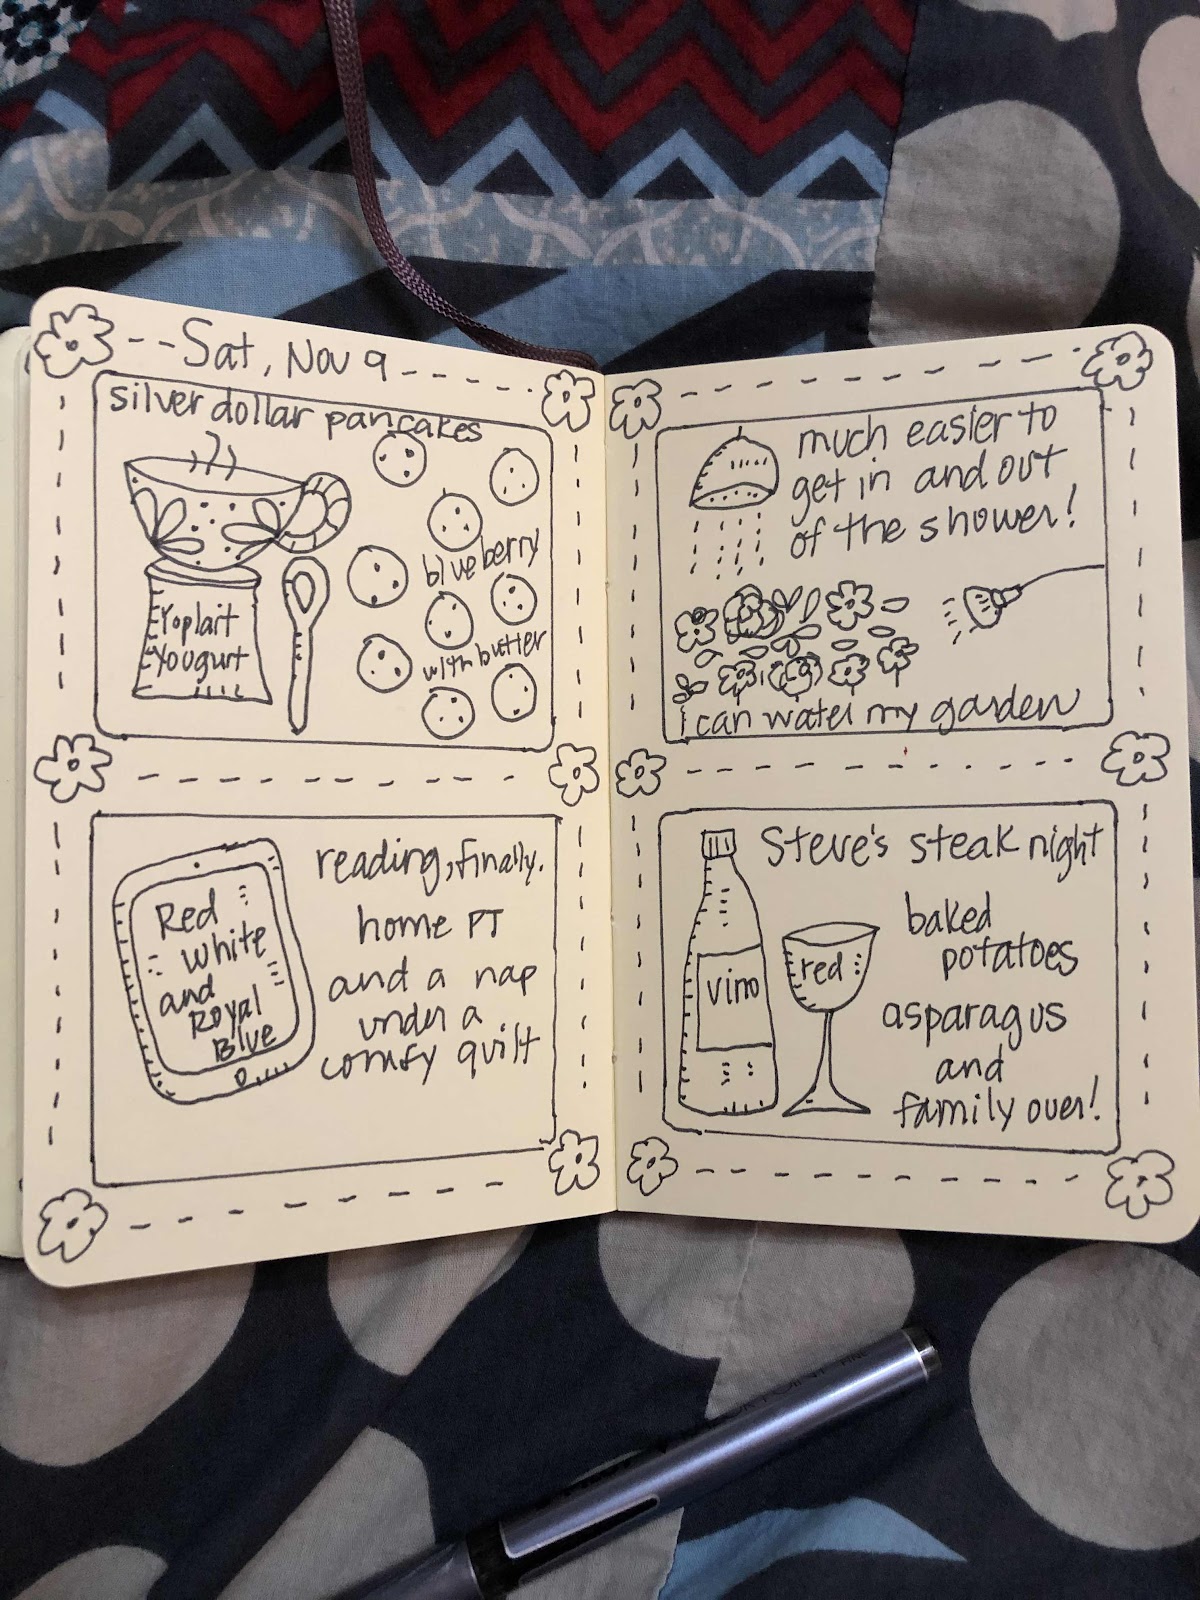 Sat, Nov 9
silver dollar pancakes
blueberry
with butter
Yoplait
Yougurt
much easier to
get in and out
of the shower!
i can water my garden
Red
White
and
Royal
Blue
reading, finally.
home PT
and a nap
under a
comfy quilt
Steve's steak night
vino
red
baked
potatoes
asparagus
and
family over!